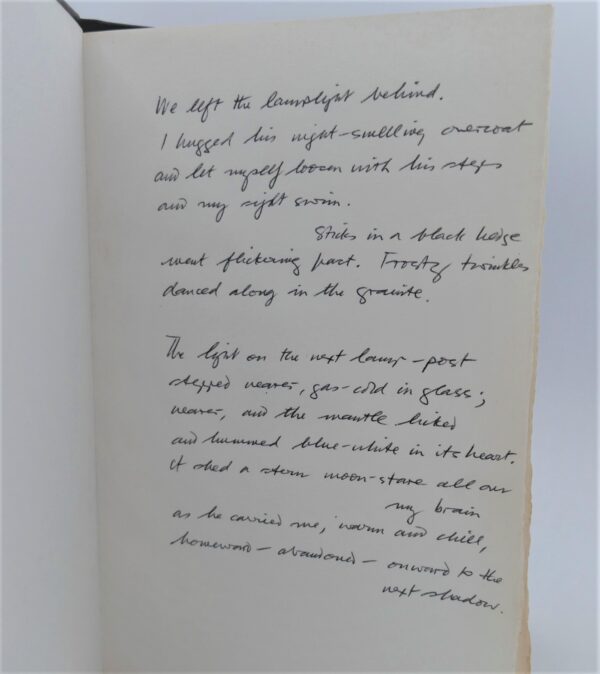 We left the lamplight behind.
I hugged his night-smelling overcoat
and let myself loosen with his steps
and my sight swim.
Sticks in a black hedge
went flickering past. Frosty twinkles
danced along in the granite.
The light on the next lamp-post
stepped nearer, gas-cold in glass;
nearer, and the mantle licked
and hummed blue-white in its heart.
It shed a stern moon-stare all over
my brain
as he carried me, warm and chill,
homeward – abandoned – onward to the
next shadow.